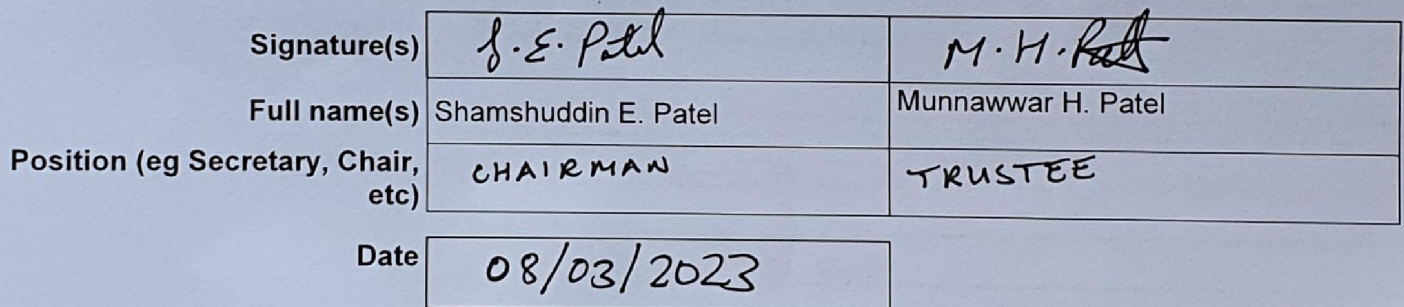 Signature(s) S.E. Patel M.H. Patel
Full name(s) Shamshuddin E. Patel Munnawwar H. Patel
Position (eg Secretary, Chair, CHAIRMAN TRUSTEE
etc)
Date 08/03/2023